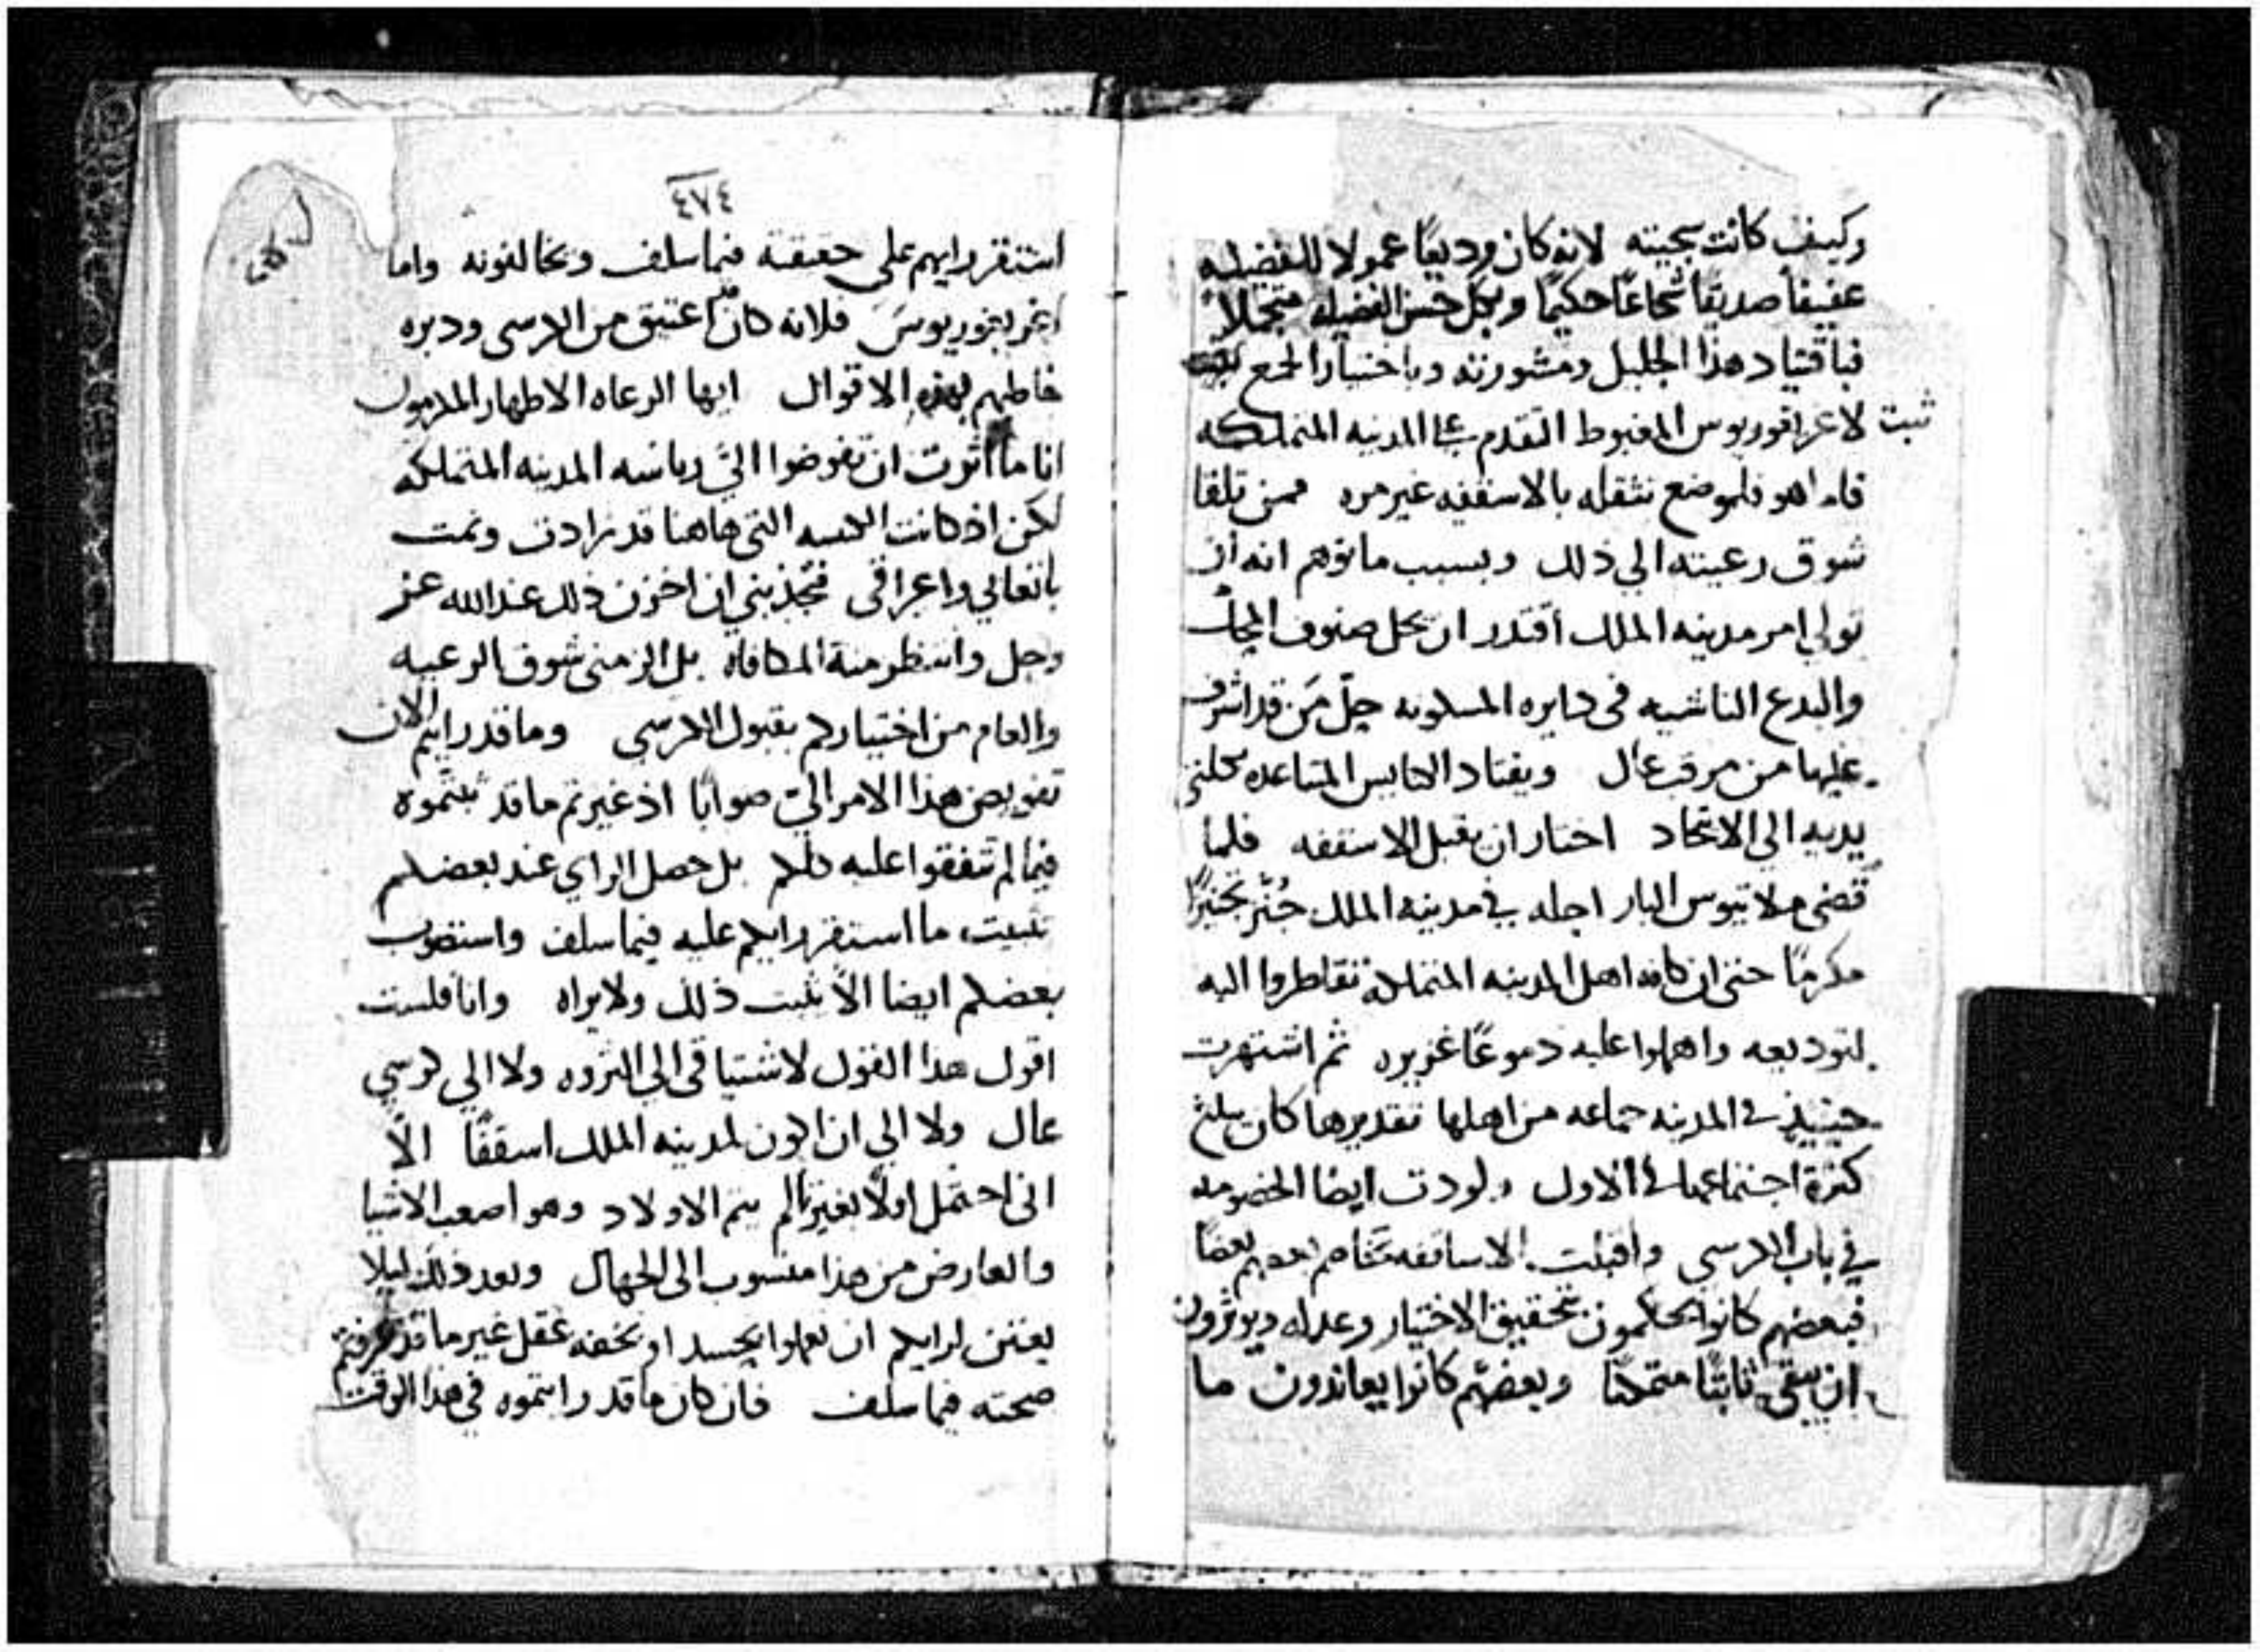 وكيف كانت سجيته لانه كان وديعًا عمولا للفضيله
عفيفاً صديقاً شجاعًا حكيمًا وبكل حسن الفضيله متجملاً
فباقتياد هذا الجليل ومشورته وباختيار الجمع
ثبت لاغريغوريوس المغبوط التقدم على المدينه المتملكه
فاما هو فلموضع نثقله بالاسقفيه غير مره فمن تلقا
شوق رعيته الي ذلك وبسبب ما توهم انه ان
تولي امر مدينه الملك اقتدر ان يحل صنوف
والبدع الناشيه في دايره المسكونه جلّ مَن قد اشرف
عليها من مرقب عال ويقتاد الكنايس المتباعده بكلتي
يديه الي الاتحاد اختار ان يقبل الاسقفه فلما
قضى ملاتيوس البار اجله في مدينه الملك جُنّز تجنيزًا
مكرمًا حتى ان كافه اهل المدينه المتملكه تقاطروا اليه
لتوديعه واهملوا عليه دموعًا غزيره ثم اشتهرت
حينيذٍ في المدينه جماعه من اهلها تقديرها كان يبلغ
كثرة اجتماعها في الاول ولودت ايضا الخصومه
في باب الكرسي واقبلت الاساقفه تخاصم بعضهم بعضًا
فبعضهم كانوا يحكمون بتحقيق الاختيار وعدله ويوثرون
ان يبقى ثابتًا متمكنًا وبعضهم كانوا يعاندون ما
٤٧٤
استقر رايهم على حقيقته فيما سلف ويخالفونه واما
اغريغوريوسَ فلانه كان اعتيق من الكرسي ودبره
خاطبهم بهذه الاقوال ايها الرعاه الاطهار المكرمون
انا ما اثرت ان تفوضوا اليّ رياسه المدينه المتملكه
لكن اذ كانت الكنيسه التي هاهنا قد زادت ونمت
باتعابي واعراقي فتجذبني ان اخزن ذلك عند الله عز
وجل وانتظر منه المكافاه بل الزمني شوق الرعيه
والعام من اختياركم بقبول الكرسي وما قد رايتم الان
تفويض هذا الامر اليّ صوابًا اذ غيرتم ما قد ثبتّموه
فيما لم تتفقوا عليه كلكم بل حصل الراي عند بعضكم
تثبيت ما استقر رايكم عليه فيما سلف واستصوب
بعضكم ايضا الّا يثبت ذلك ولا يراه وانا فلست
اقول هذا القول لاشتياقي الي الثروه ولا الي كرسي
عال ولا الي ان اكون لمدينه الملك اسقفًا الّا
اني احتمل اولًا بغير تالم يتم الاولاد وهو اصعب الاشيا
والعارض من هذا منسوب الى الجهال وبعد ذلك ليلا
يعتن لرايكم ان تعملوا بحسد او بخفه عقل غير ما قد عرفتم
صحته فيما سلف فان كان ما قد رايتموه في هذا الوقت